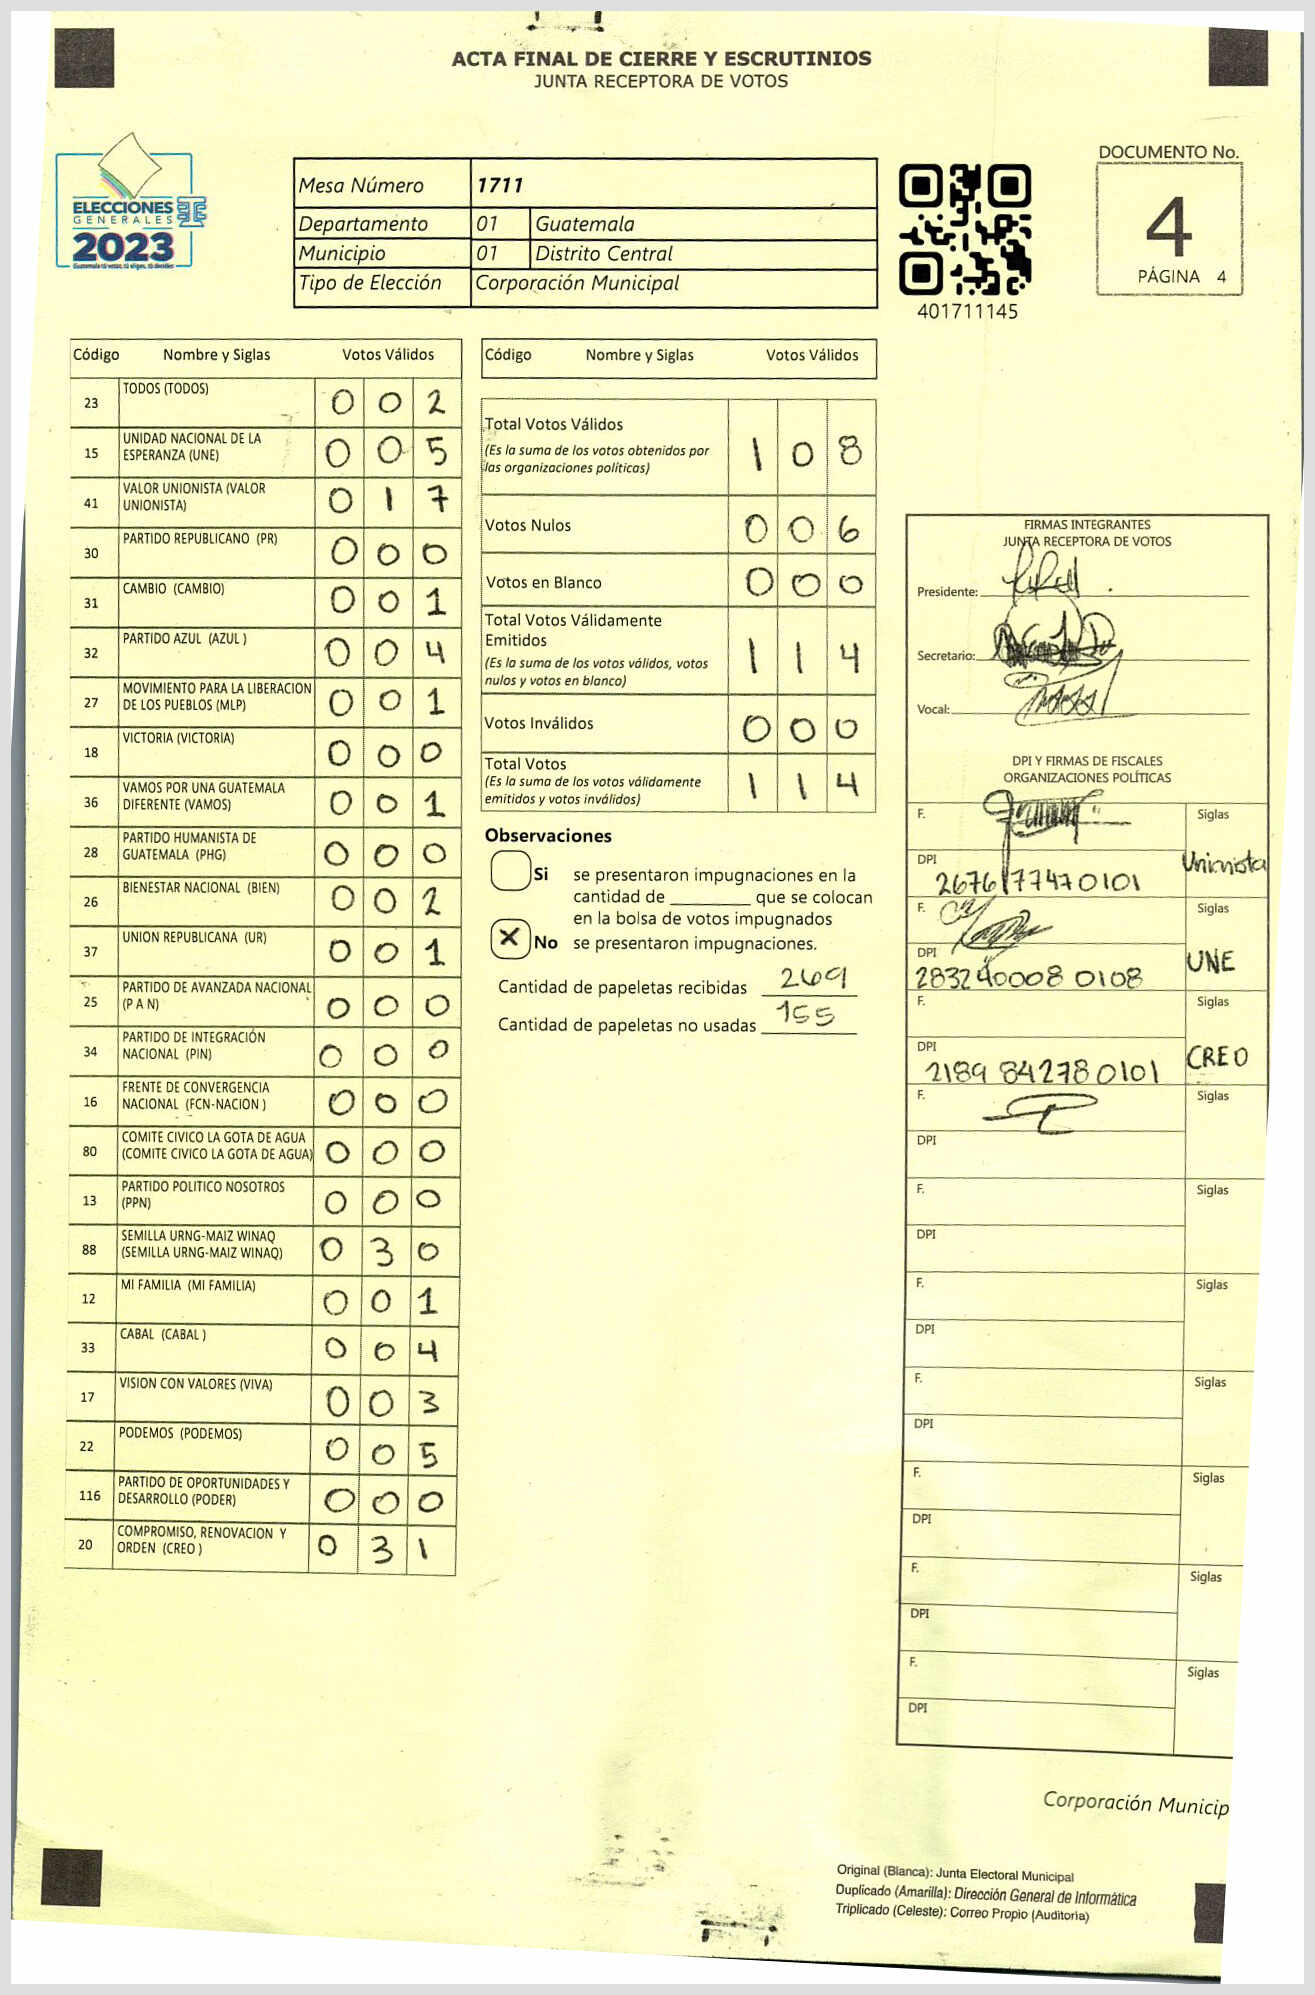 ACTA FINAL DE CIERRE Y ESCRUTINIOS
JUNTA RECEPTORA DE VOTOS
ELECCIONES
GENERALES
2023
Mesa Número 1711
Departamento 01 Guatemala
Municipio 01 Distrito Central
Tipo de Elección Corporación Municipal
401711145
DOCUMENTO No.
4
PÁGINA 4
Código Nombre y Siglas Votos Válidos
23 TODOS (TODOS) 0 0 2
15 UNIDAD NACIONAL DE LA
ESPERANZA (UNE) 0 0 5
41 VALOR UNIONISTA (VALOR
UNIONISTA) 0 1 7
30 PARTIDO REPUBLICANO (PR) 0 0 0
31 CAMBIO (CAMBIO) 0 0 1
32 PARTIDO AZUL (AZUL ) 0 0 4
27 MOVIMIENTO PARA LA LIBERACION
DE LOS PUEBLOS (MLP) 0 0 1
18 VICTORIA (VICTORIA) 0 0 0
36 VAMOS POR UNA GUATEMALA
DIFERENTE (VAMOS) 0 0 1
28 PARTIDO HUMANISTA DE
GUATEMALA (PHG) 0 0 0
26 BIENESTAR NACIONAL (BIEN) 0 0 2
37 UNION REPUBLICANA (UR) 0 0 1
25 PARTIDO DE AVANZADA NACIONAL
(P A N) 0 0 0
34 PARTIDO DE INTEGRACIÓN
NACIONAL (PIN) 0 0 0
16 FRENTE DE CONVERGENCIA
NACIONAL (FCN-NACION ) 0 0 0
80 COMITE CIVICO LA GOTA DE AGUA
(COMITE CIVICO LA GOTA DE AGUA) 0 0 0
13 PARTIDO POLITICO NOSOTROS
(PPN) 0 0 0
88 SEMILLA URNG-MAIZ WINAQ
(SEMILLA URNG-MAIZ WINAQ) 0 3 0
12 MI FAMILIA (MI FAMILIA) 0 0 1
33 CABAL (CABAL ) 0 0 4
17 VISION CON VALORES (VIVA) 0 0 3
22 PODEMOS (PODEMOS) 0 0 5
116 PARTIDO DE OPORTUNIDADES Y
DESARROLLO (PODER) 0 0 0
20 COMPROMISO, RENOVACION Y
ORDEN (CREO ) 0 3 1
Código Nombre y Siglas Votos Válidos
Total Votos Válidos
(Es la suma de los votos obtenidos por
las organizaciones políticas) 1 0 8
Votos Nulos 0 0 6
Votos en Blanco 0 0 0
Total Votos Válidamente
Emitidos
(Es la suma de los votos válidos, votos
nulos y votos en blanco) 1 1 4
Votos Inválidos 0 0 0
Total Votos
(Es la suma de los votos válidamente
emitidos y votos inválidos) 1 1 4
Observaciones
Si se presentaron impugnaciones en la
cantidad de ________ que se colocan
en la bolsa de votos impugnados
X No se presentaron impugnaciones.
Cantidad de papeletas recibidas 269
Cantidad de papeletas no usadas 155
FIRMAS INTEGRANTES
JUNTA RECEPTORA DE VOTOS
Presidente:
Secretario:
Vocal:
DPI Y FIRMAS DE FISCALES
ORGANIZACIONES POLÍTICAS
F. Siglas
DPI 2676177470101 Unionista
F. Siglas
DPI 283240008 0108 UNE
F. Siglas
DPI 2189 84278 0101 CREO
F. Siglas
DPI
F. Siglas
DPI
F. Siglas
DPI
F. Siglas
DPI
F. Siglas
DPI
F. Siglas
DPI
F. Siglas
DPI
Corporación Municip
Original (Blanca): Junta Electoral Municipal
Duplicado (Amarilla): Dirección General de Informática
Triplicado (Celeste): Correo Propio (Auditoría)